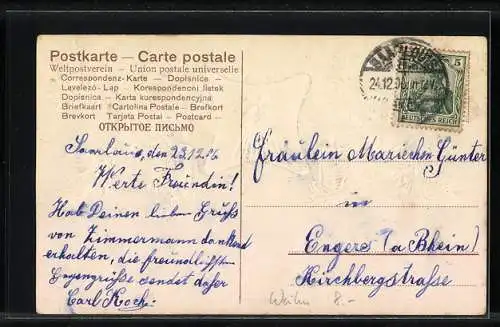 Postkarte — Carte postale
Weltpostverein — Union postale universelle
Correspondenz-Karte — Dopisnica —
Levelező-Lap — Korespondenční lístek
Dopisnica — Karta korespondencyjna
Briefkaart Cartolina Postale — Brefkort
Brevkort Tarjeta Postal — Postcard —
ОТКРЫТОЕ ПИСЬМО
Saarlouis, den 23.12.06
Werte Freundin!
Hab Deinen lieben Gruß
von Zimmermann dankend
erhalten, die freundlichsten
Gegengrüße sendet daher
Carl Koch.
24.12.06
5
DEUTSCHES REICH
Fräulein Mariechen Günter
in
Engers (a Rhein)
Kirchbergstraße
Weihn 8.-